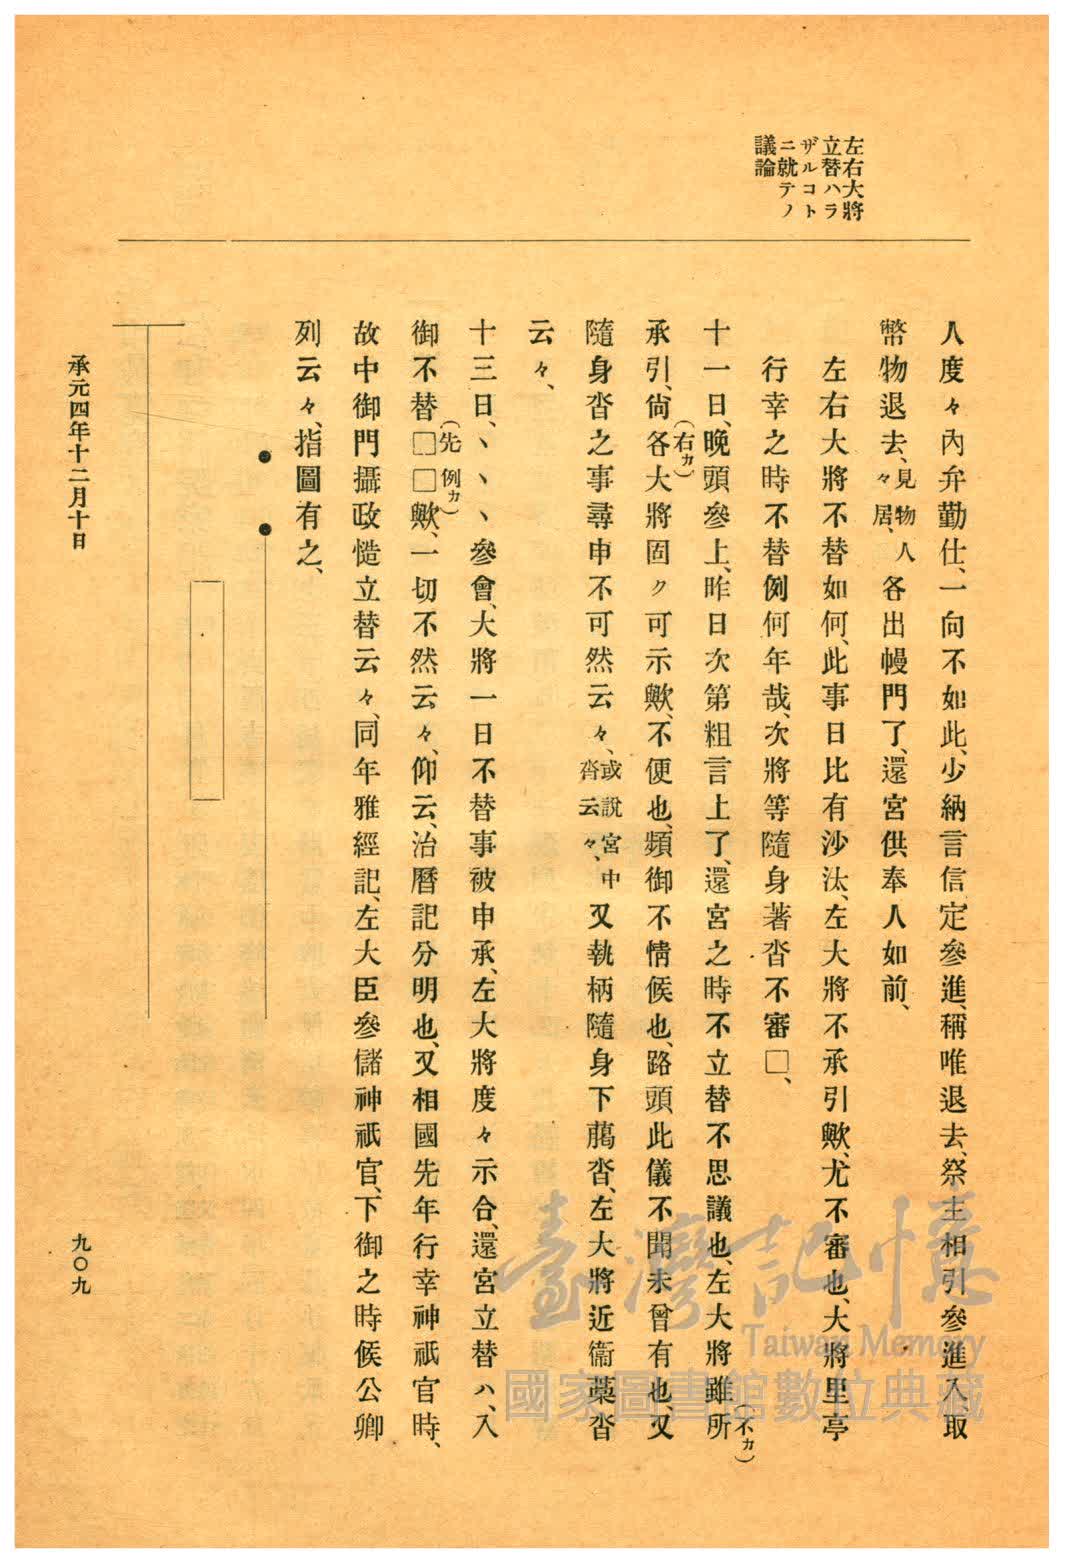 左右大將
立替ハラ
ザルコト
ニ就テノ
議論
人度々內弁勤仕、一向不如此、少納言信定參進、稱唯退去、祭主相引參進入、取
幣物退去、見物人々居、各出幔門了、還宮供奉人如前、
左右大將不替如何、此事日比有沙汰、左大將不承引歟、尤不審也、大將里亭
行幸之時不替例何年哉、次將等隨身著沓不審□、
十一日、晚頭參上、昨日次第粗言上了、還宮之時不立替不思議也、左大將雖所(不カ)
承引、尙各(右カ)大將固ク可示歟、不便也、頻御不情候也、路頭此儀不聞未曾有也、又
隨身沓之事尋申不可然云々、或說宮中沓云々、又執柄隨身下﨟沓、左大將近衞藁沓
云々、
十三日、ヽヽヽ參會、大將一日不替事被申承、左大將度々示合、還宮立替ハ、入
御不替□□(先例カ)歟、一切不然云々、仰云、治曆記分明也、又相國先年行幸神祇官時、
故中御門攝政慥立替云々、同年雅經記、左大臣參儲神祇官、下御之時候公卿
列云々、指圖有之、
承元四年十二月十日
九〇九
臺灣記憶
Taiwan Memory
國家圖書館數位典藏